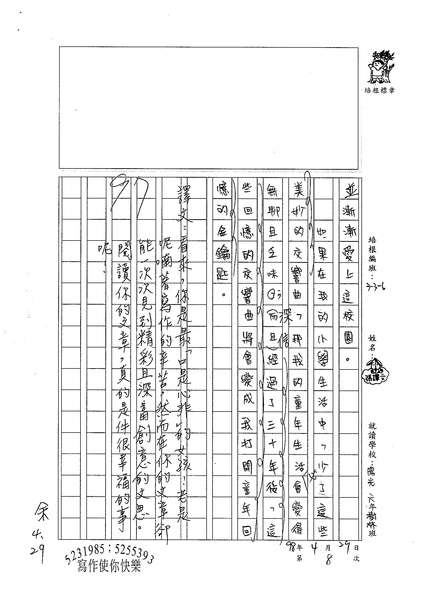 培根標章
培根編班：3-3-6
姓名：
就讀學校：陽光 六年樹班
98年4月29日
第8次
並漸漸愛上這校園。
如果在我的小學生活中，少了這些
美妙的交響曲，那我的童年生活會變得
無聊且乏味。而且經過了三十年後，這
深信
些回憶的交響曲將會變成我打開童年回
憶的金鑰匙。
譯文：看來，你是最「口是心非」的女孩！老是
呢喃著寫作的辛苦，然而在你的文章卻
能一次次見到精彩且深富創意的文思。
閱讀你的文章，真的是件很幸福的事
呢！
97
余
4.
29
5231985；5255393
寫作使你快樂